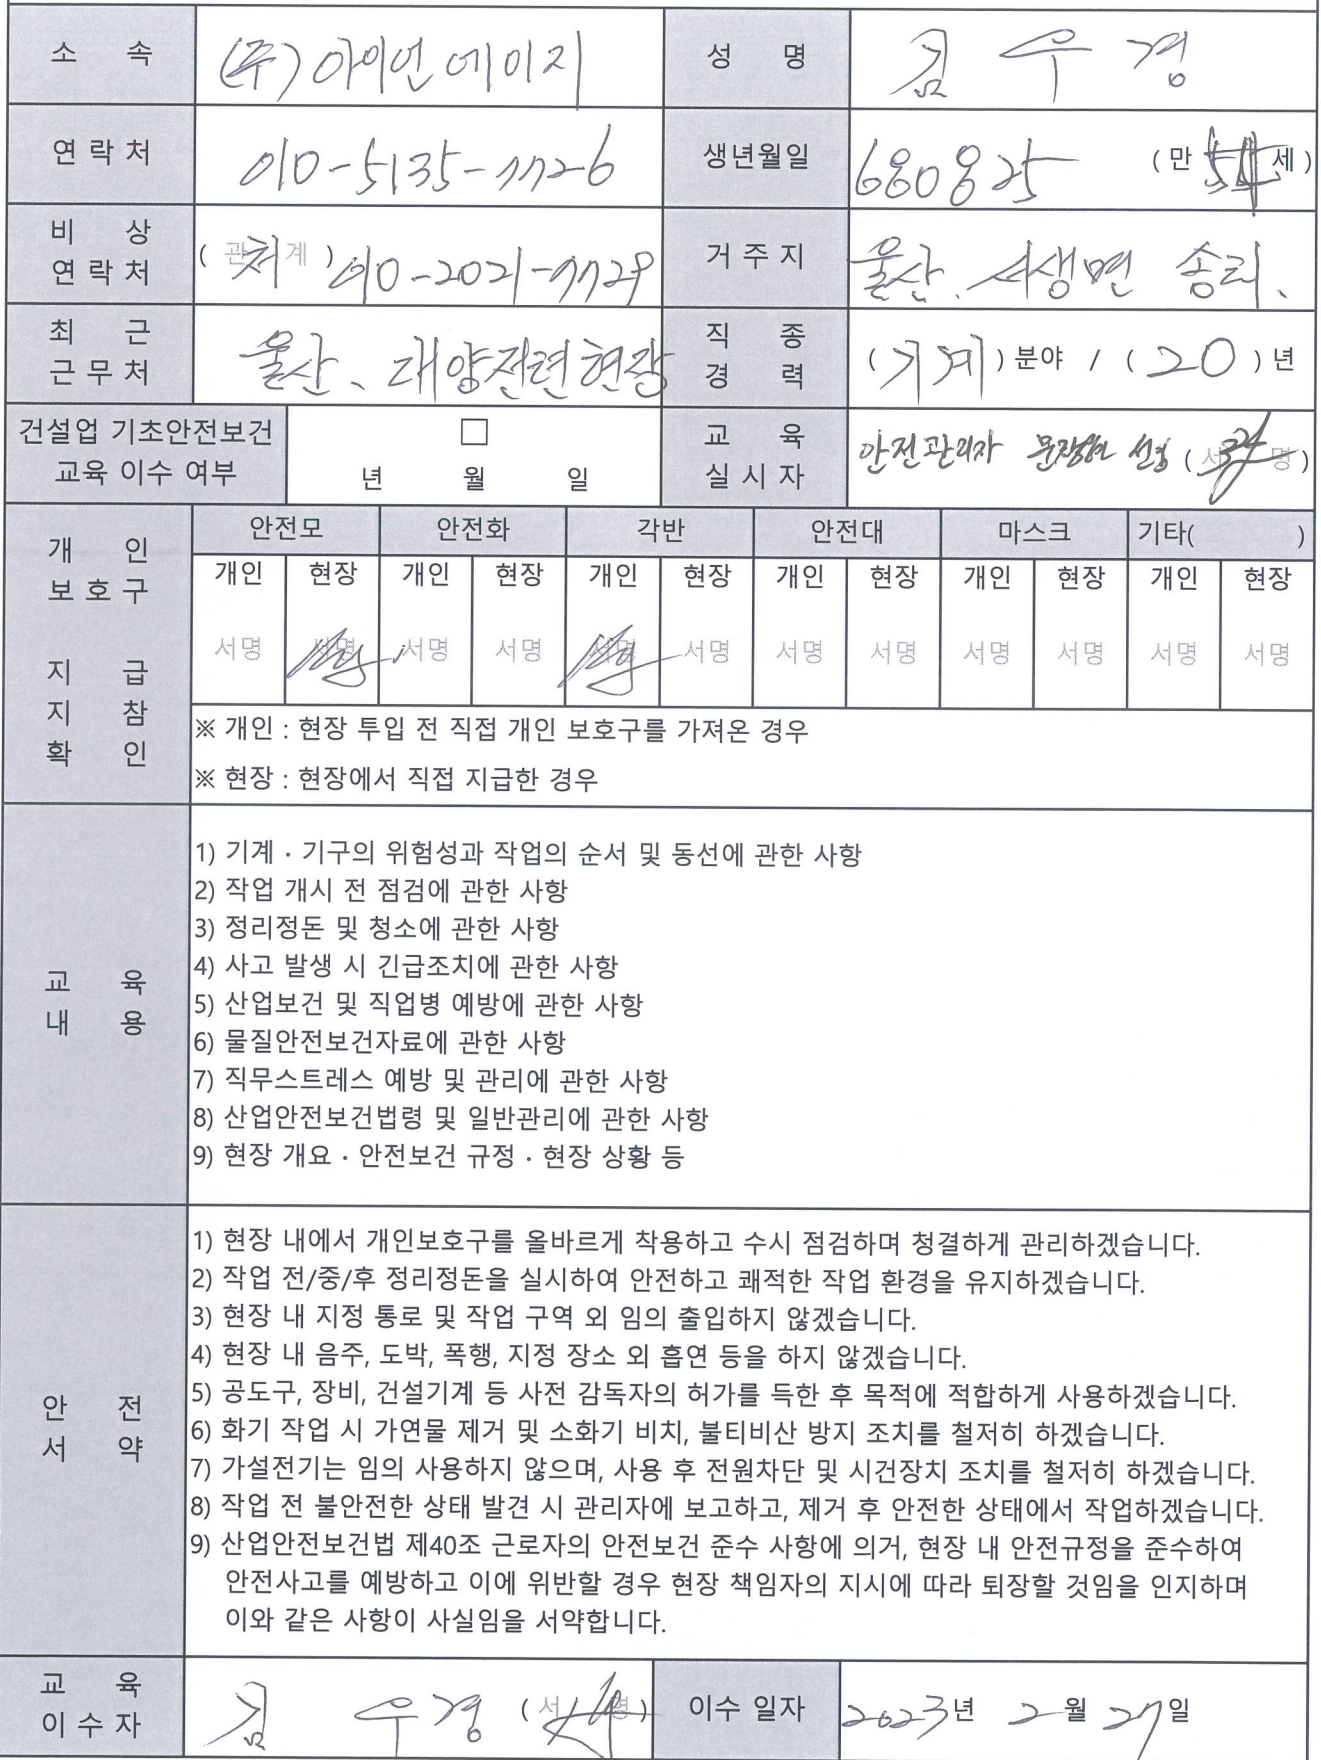 소 속 (주)아이언에이지 성 명 김 우 경
연락처 010-5135-7726 생년월일 680825 (만 54세)
비 상 연락처 (관계 처) 010-2021-7729 거주지 울산. 서생면 송리.
최 근 근무처 울산、대양전련현장 직 종 경 력 (기계)분야 / (20)년
건설업 기초안전보건 교육 이수 여부 □ 년 월 일 교 육 실시자 안전관리자 (서명)
개 인 보호구 지 급 지 참 확 인
안전모 안전화 각반 안전대 마스크 기타( )
개인 현장 개인 현장 개인 현장 개인 현장 개인 현장 개인 현장
서명 서명 서명 서명 서명 서명 서명 서명 서명 서명 서명 서명
※ 개인 : 현장 투입 전 직접 개인 보호구를 가져온 경우
※ 현장 : 현장에서 직접 지급한 경우
교 육 내 용
1) 기계 · 기구의 위험성과 작업의 순서 및 동선에 관한 사항
2) 작업 개시 전 점검에 관한 사항
3) 정리정돈 및 청소에 관한 사항
4) 사고 발생 시 긴급조치에 관한 사항
5) 산업보건 및 직업병 예방에 관한 사항
6) 물질안전보건자료에 관한 사항
7) 직무스트레스 예방 및 관리에 관한 사항
8) 산업안전보건법령 및 일반관리에 관한 사항
9) 현장 개요 · 안전보건 규정 · 현장 상황 등
안 전 서 약
1) 현장 내에서 개인보호구를 올바르게 착용하고 수시 점검하며 청결하게 관리하겠습니다.
2) 작업 전/중/후 정리정돈을 실시하여 안전하고 쾌적한 작업 환경을 유지하겠습니다.
3) 현장 내 지정 통로 및 작업 구역 외 임의 출입하지 않겠습니다.
4) 현장 내 음주, 도박, 폭행, 지정 장소 외 흡연 등을 하지 않겠습니다.
5) 공도구, 장비, 건설기계 등 사전 감독자의 허가를 득한 후 목적에 적합하게 사용하겠습니다.
6) 화기 작업 시 가연물 제거 및 소화기 비치, 불티비산 방지 조치를 철저히 하겠습니다.
7) 가설전기는 임의 사용하지 않으며, 사용 후 전원차단 및 시건장치 조치를 철저히 하겠습니다.
8) 작업 전 불안전한 상태 발견 시 관리자에 보고하고, 제거 후 안전한 상태에서 작업하겠습니다.
9) 산업안전보건법 제40조 근로자의 안전보건 준수 사항에 의거, 현장 내 안전규정을 준수하여
안전사고를 예방하고 이에 위반할 경우 현장 책임자의 지시에 따라 퇴장할 것임을 인지하며
이와 같은 사항이 사실임을 서약합니다.
교 육 이수자 김 우경 (서명) 이수 일자 2023년 2월 27일